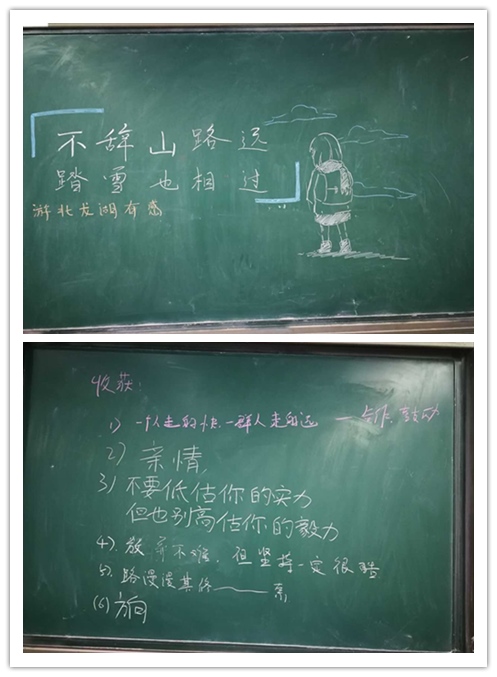 不辞山路远
踏雪也相过
游北龙湖有感
收获:
1) 一个人走的快,一群人走的远 —— 合作,鼓动
2) 亲情
3) 不要低估你的实力
但也别高估你的毅力
4). 放弃不难,但坚持一定很酷
5). 路漫漫其修——累
(6) 方向